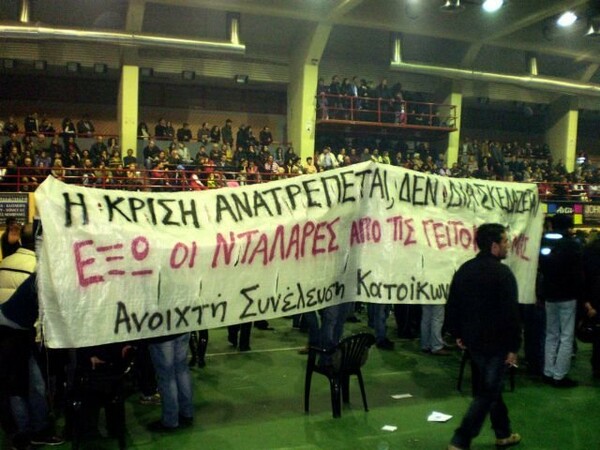 Η ΚΡΙΣΗ ΑΝΑΤΡΕΠΕΤΑΙ, ΔΕΝ ΔΙΑΣΚΕΔΑΖΕΤΑΙ
ΕΞΩ ΟΙ ΝΤΑΛΑΡΕΣ ΑΠΟ ΤΙΣ ΓΕΙΤΟΝΙΕΣ ΜΑΣ
Ανοιχτή Συνέλευση Κατοίκων